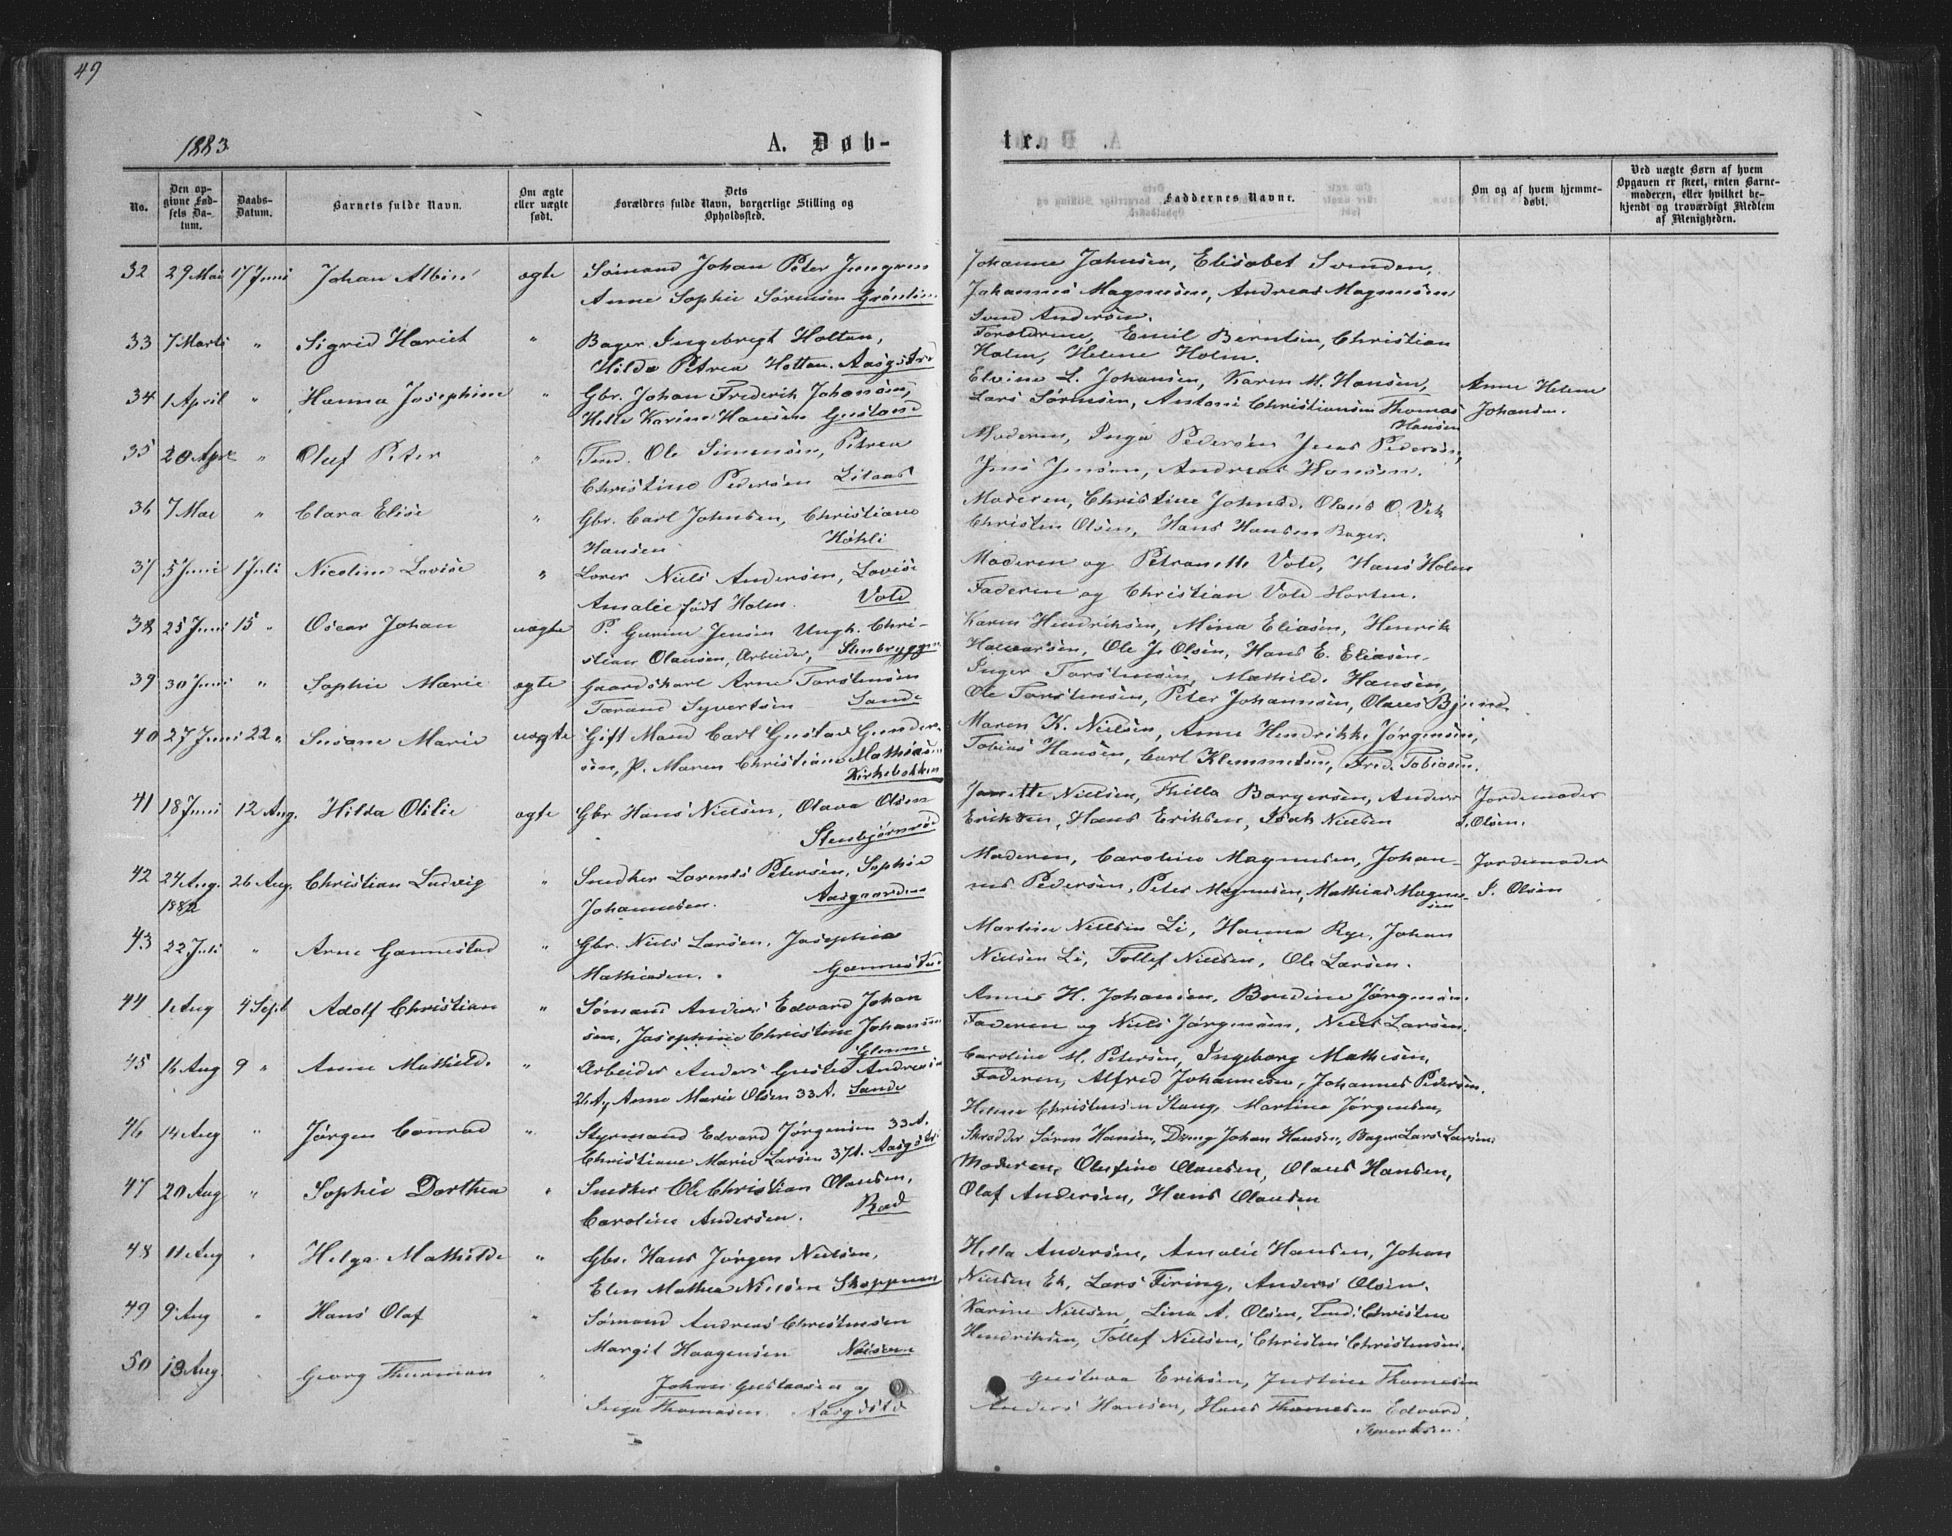 49
1883
A. Døb-
tr.
No.
Den opgivne Fødsels Datum.
Daabs-Datum.
Barnets fulde Navn.
Om ægte eller uægte født.
Dets Forældres fulde Navn, borgerlige Stilling og Opholdssted.
Faddernes Navne.
Om og af hvem hjemmedøbt.
Ved uægte Børn af hvem Opgaven er skeet, enten Barnemoderen, eller hvilket bekjendt og troværdigt Medlem af Menigheden.
32 29 Mai 17 Juni Johan Albin ægte Sømand Johan Peter
Anne Sophie Sørensen
Johanne Johnsen, Elisabet Svendsen,
Johannes Magnusen, Andreas Magnusen
Svend Andersen.
33 7 Marts " Sigrid Hariet " Bager Ingebregt Holtan,
Hilda Petrea Holtan. Aasgstrd
Forældrene, Emil Berntsen, Christian
Holm, Helene Holm.
34 1 April " Hanna Josephine " Gbr. Johan Frederik Johansen,
Helle Karine Hansen
Elvine L. Johansen, Karen M. Hansen,
Lars Sørensen, Antoni Christiansen Thomas
Hansen
Anne Helene
Johansen.
35 20 Apr " Oluf Peter " Tmd. Ole Simensen, Petrea
Christine Pedersen
Moderen, Inga Pedersen Jens Pedersen,
Jens Jensen, Andreas Hansen.
36 7 Mai " Clara Elise " Gbr. Carl Johnsen, Christiane
Hansen
Moderen, Christine Johns. Olaus O. Vik
Christen Olsen, Hans Hansen Bager.
37 5 Juni 1 Juli Nicoline Lovise " Niels Andersen, Lovise
Amalie født Holm. Vold
Moderen og Petranelle Vold, Hans Holm
Faderen og Christian Vold Horten.
38 25 Juni 15 " Oscar Johan uægte P. Gurine Jensen Ungk. Chri-
stian Olausen, Arbeider, Stenbryggen
Karen Hendriksen, Mina Eliasen, Henrik
Halvorsen, Ole J. Olsen, Hans E. Eliasen.
39 30 Juni " Sophie Marie ægte Gaardskarl Arne Torstensen
Tarand Syvertsen Sande
Inger Torstensen, Mathilde Hansen,
Ole Torstensen, Peter Johannsen, Olaus
40 27 Juni 22 " Susane Marie uægte Gift Mand Carl Gustav Gunder-
sen, P. Maren Christiane Mathisen
Kirkebakken
Maren K. Nielsen, Anne Hendrikke Jørgensen,
Tobias Hansen, Carl Klemmetsen, Fred. Tobiasen.
41 18 Juni 12 Aug. Hilda Otilie ægte Gbr Hans Nielsen, Olava Olsen
Stenbjørnrød
Janette Nielsen, Thilla Borgersen, Anders
Eriksen, Hans Eriksen, Isak Nielsen
Jordemoder
S. Olsen.
42 24 Aug. 1882 26 Aug. Christian Ludvig " Snedker Lorents Petersen, Sophie
Johannesen. Aasgaarden
Moderen, Caroline Magnusen, Johan-
nes Pedersen, Peter Magnusen, Mathias Magnu-
sen
Jordemoder
S. Olsen
43 22 Juli " Arne Gannestad " Gbr. Niels Larsen, Josephine
Mathiasen. Gannestad
Martine Nielsen Li, Hanna Rye, Johan
Nielsen Li, Tollef Nielsen, Ole Larsen.
44 1 Aug 4 Sept Adolf Christian " Sømand Anders Edvard Johan
sen, Josephine Christine Johansen
Glenne
Annie H. Johansen, Bredine Jørgensen.
Faderen og Niels Jørgensen, Niels Larsen.
45 16 Aug 9 " Anne Mathilde " Arbeider Anders Gustav Andresen
26 A, Anne Marie Olsen 33 A. Sande
Caroline M. Petersen, Ingeborg Mathisen,
Faderen, Alfred Johannesen, Johannes Pedersen.
46 14 Aug " Jørgen Conrad " Styrmand Edvard Jørgensen 33 A.
Christiane Marie Larsen 37 A. Aasgstr.
Helene Christensen Stang, Martine Jørgensen,
Skrædder Søren Hansen, Dreng Johan Hansen, Bager Lars Larsen.
47 20 Aug " Sophie Dorthea " Snedker Ole Christian Olausen,
Caroline Andersen. Rød
Moderen, Olufine Olausen, Olaus Hansen,
Olaf Andersen, Hans Olausen
48 11 Aug " Helga Mathilde " Gbr. Hans Jørgen Nielsen,
Elen Mathea Nielsen Skoppum
Hella Andersen, Amalie Hansen, Johan
Nielsen Ek, Lars Firing, Anders Olsen.
49 9 Aug " Hans Olaf " Sømand Andreas Christensen
Margit Haagensen
Karine Nielsen, Lina A. Olsen, Tmd. Christen
Hendriksen, Tollef Nielsen, Christen Christensen.
50 13 Aug. " Georg Thurman " Johan Gustavsen og
Inga Thomasen. Aasgdstrd
Gustava Eriksen, Justine Thomesen
Anders Hansen, Hans Thomesen Edvard
Syvertsen.